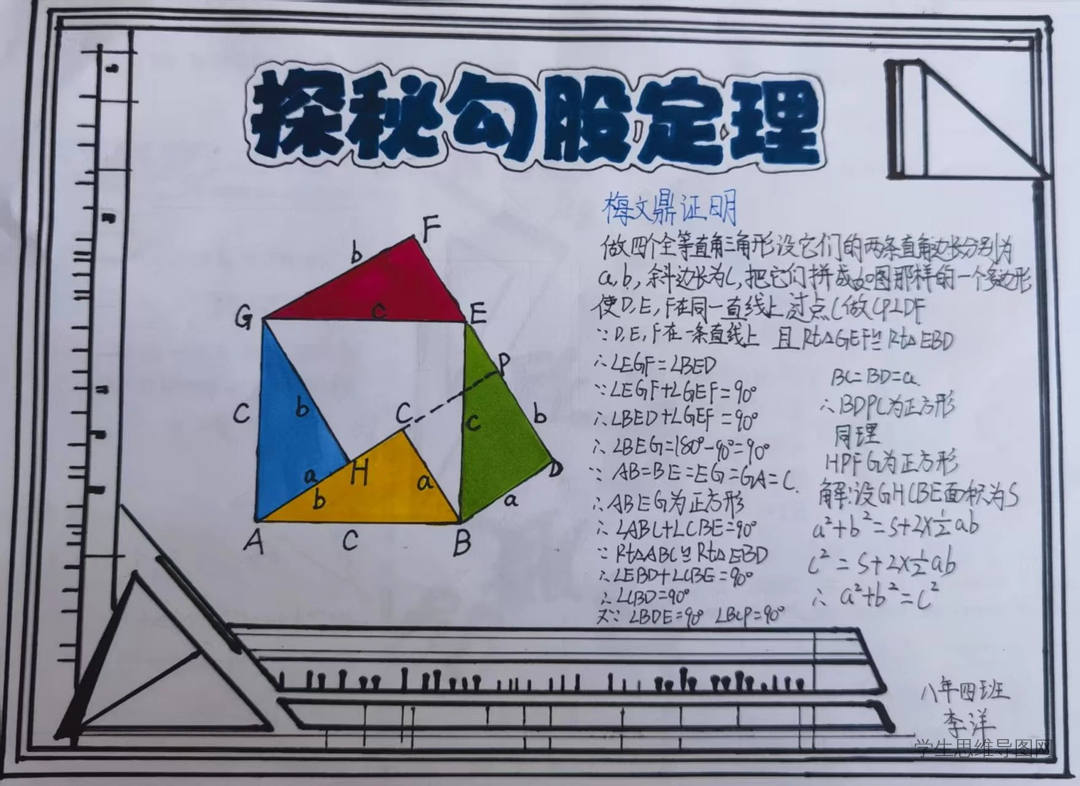 探秘勾股定理
梅文鼎证明
做四个全等直角三角形设它们的两条直角边长分别为
a,b,斜边长为C,把它们拼成如图那样的一个多边形
使D,E,F在同一直线上过点C做CP⊥DF
∵D,E,F在一条直线上 且Rt△GEF≌Rt△EBD
∴∠EGF=∠BED
∵∠EGF+∠GEF=90°
∴∠BED+∠GEF=90°
∴∠BEG=180°-90°=90°
∵AB=BE=EG=GA=C.
∴ABEG为正方形
∴∠ABC+∠CBE=90°
∵Rt△ABC≌Rt△EBD
∴∠EBD+∠CBE=90°
∴∠CBD=90°
又∵∠BDE=90° ∠BCP=90°
BC=BD=a.
∴BDPC为正方形
同理
HPFG为正方形
解:设GHCBE面积为S
a²+b²=S+2×½ab
c²=S+2×½ab
∴a²+b²=c²
F
b
G
c
E
P
C
b
C
c
b
a
H
D
b
a
a
A
C
B
八年四班
李洋
学生思维导图网